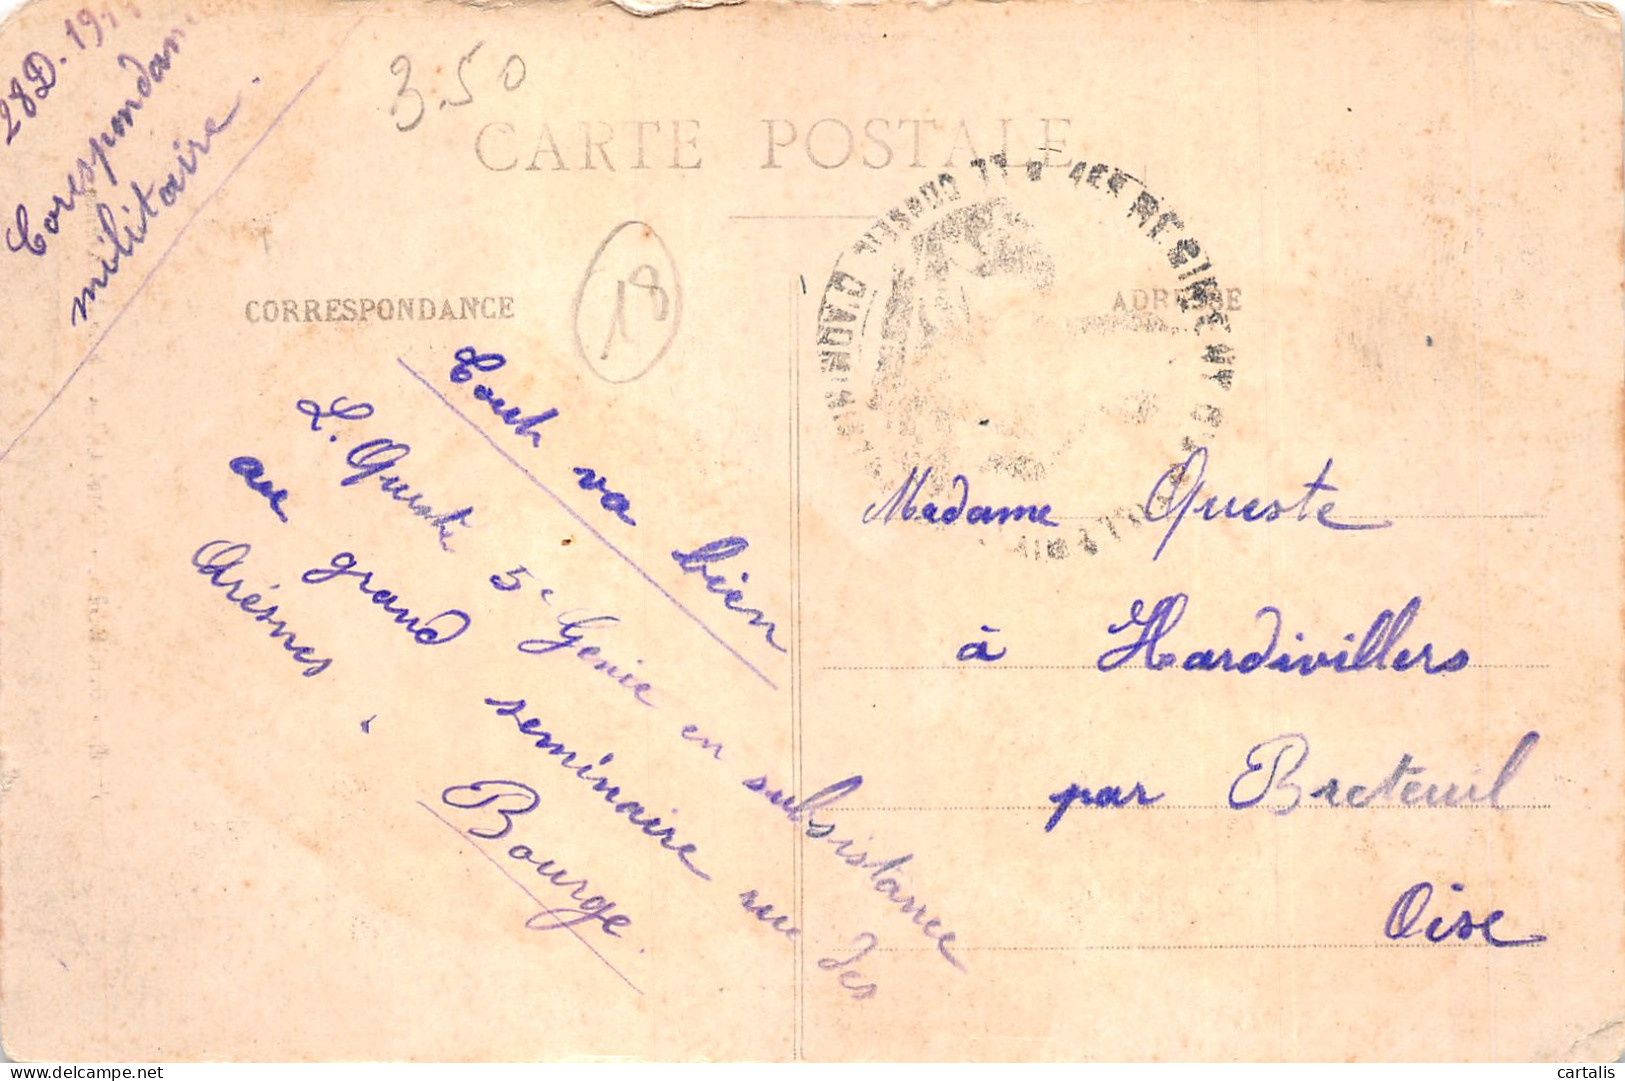 28 D. 19
Correspondan
militaire
3.50
CARTE POSTALE
CORRESPONDANCE
18
ADRESSE
Tout va bien
L. Queste 5e Génie en subsistance
au grand seminaire rue des
Arésnes.
Bourge.
Madame Queste
à Hardivillers
par Breteuil
Oise
cartalis
delcampe.net